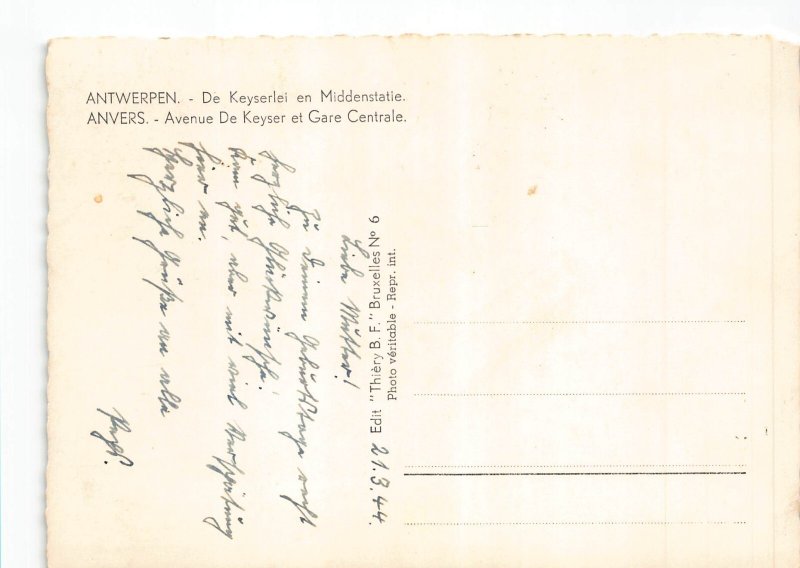 ANTWERPEN. - De Keyserlei en Middenstatie.
ANVERS. - Avenue De Keyser et Gare Centrale.
Edit "Thièry B. F." Bruxelles Nº 6
Photo véritable - Repr. int.
21.3.44.
Liebe Mutter!
Zu Deinem Geburtstage recht
herzliche Glückwünsche.
gut, aber mit viel Verspätung
hier an.
Herzliche Grüße an alle